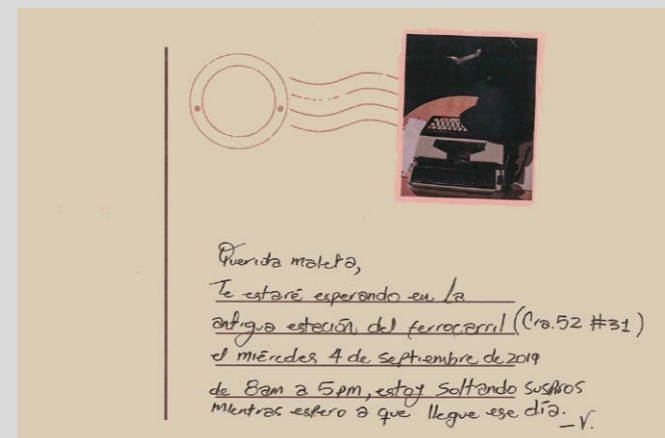 Querida maleta,
Te estaré esperando en la
antigua estación del ferrocarril (Cra. 52 #31)
el miércoles 4 de septiembre de 2019
de 8am a 5pm, estoy soltando suspiros
mientras espero a que llegue ese día.
—V.